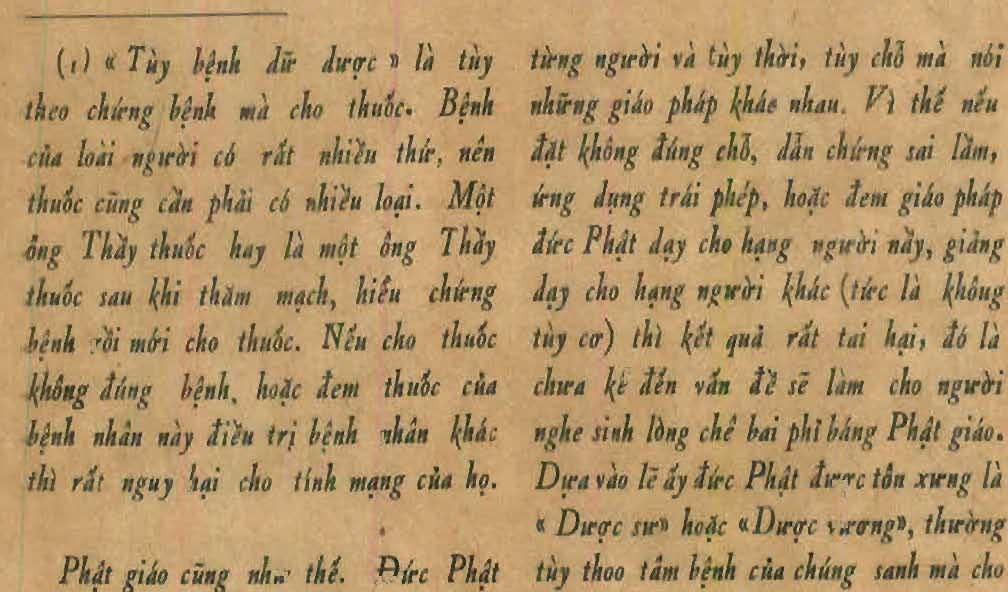 (1) « Tùy bệnh dữ dược » là tùy
theo chứng bệnh mà cho thuốc. Bệnh
của loài người có rất nhiều thứ, nên
thuốc cũng cần phải có nhiều loại. Một
ông Thầy thuốc hay là một ông Thầy
thuốc sau khi thăm mạch, hiểu chứng
bệnh rồi mới cho thuốc. Nếu cho thuốc
không đúng bệnh, hoặc đem thuốc của
bệnh nhân này điều trị bệnh nhân khác
thì rất nguy hại cho tính mạng của họ.
Phật giáo cũng như thế. Đức Phật
từng người và tùy thời, tùy chỗ mà nói
những giáo pháp khác nhau. Vì thế nếu
đặt không đúng chỗ, dẫn chứng sai lầm,
ứng dụng trái phép, hoặc đem giáo pháp
đức Phật dạy cho hạng người nầy, giảng
dạy cho hạng người khác (tức là không
tùy cơ) thì kết quả rất tai hại, đó là
chưa kể đến vấn đề sẽ làm cho người
nghe sinh lòng chê bai phỉ báng Phật giáo.
Dựa vào lẽ ấy đức Phật được tôn xưng là
« Dược sư» hoặc «Dược vương», thường
tùy thoo tâm bệnh của chúng sanh mà cho